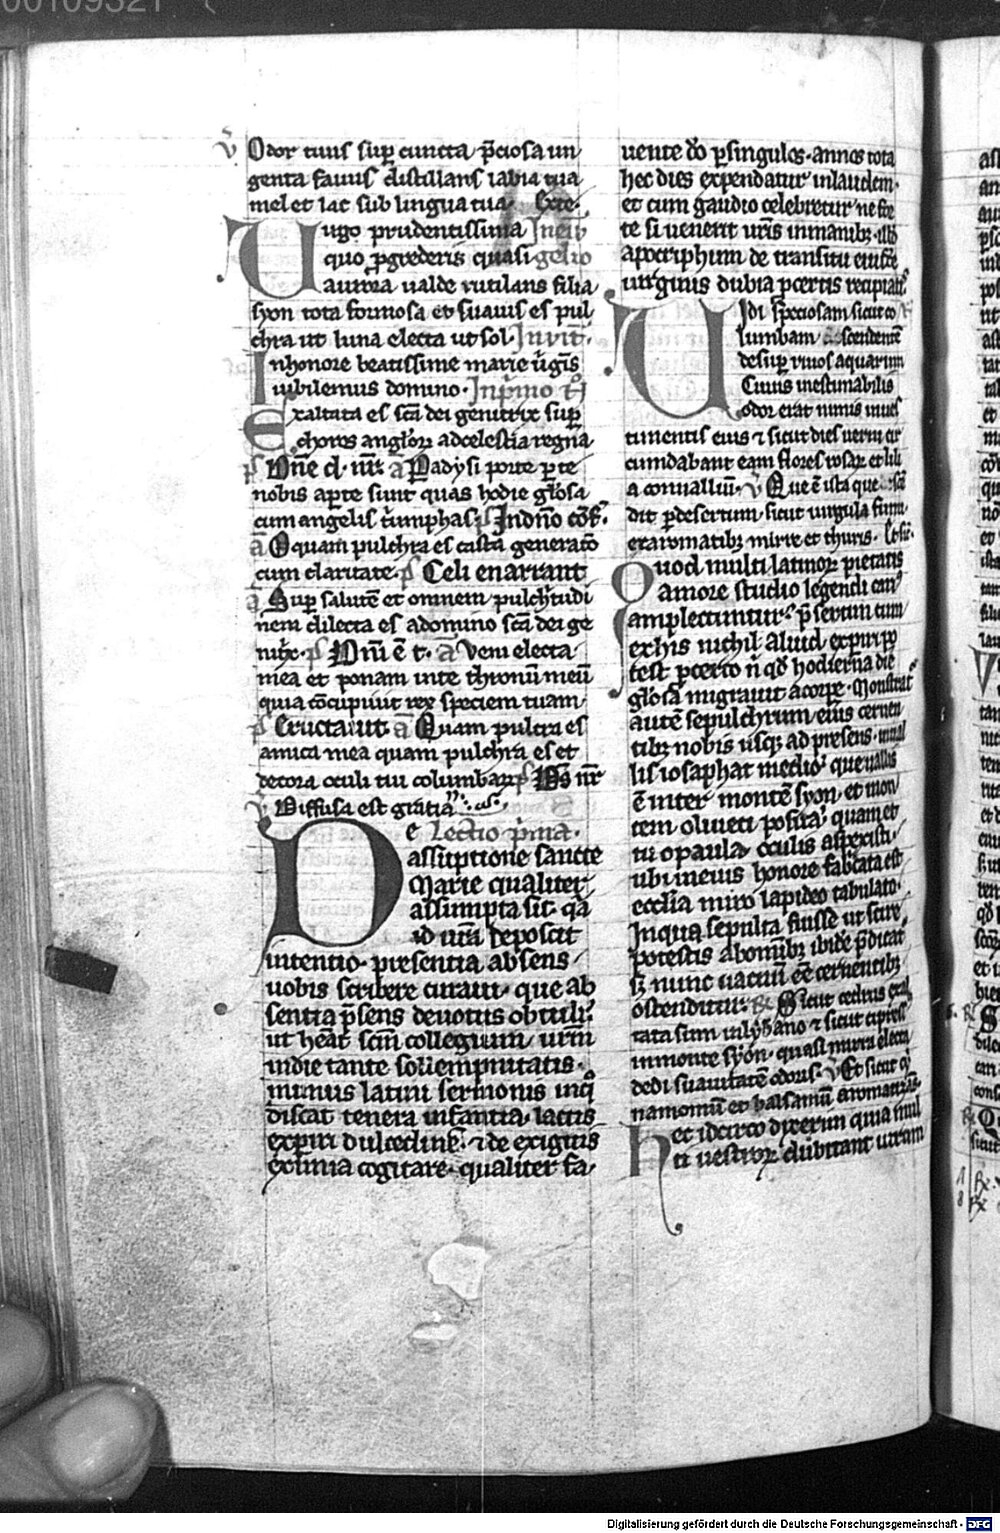 00109321
v Odor tuus sup cuncta p̄ciosa un
genta fauus distillans labia tua
mel et lac sub lingua tua.
Uirgo prudentissima
quo ꝓgrederis quasi
aurora ualde rutilans filia
syon tota formosa et suauis es pul
chra ut luna electa ut sol. Inuit̄.
In honore beatissime marie uirḡis
iubilemus domino.
Exaltata es sc̄a dei genitrix sup
choros angl̄oꝝ ad celestia regna
p̄s Dn̄e d. nr̄. a Padysi porte p te
nobis apte sunt quas hodie gl̄osa
cum angelis triumphas
a O quam pulchra es casta generatō
cum claritate. p̄s Celi enarrant
a Sup salutē et omnem pulchritudi
nem dilecta es a domino sc̄a dei ge
nitx̄. p̄s Dn̄i ē t. a Veni electa
mea et ponam in te thronū meū
quia cōcupiuit rex speciem tuam.
p̄s Eructauit. a Quam pulcra es
amica mea quam pulchra es et
decora oculi tui columbaꝝ p̄s
v Diffusa est gratia
De Lectio p̄ma.
assuptione sancte
Marie qualiter
assumpta sit. q̄a
id ur̄a deposcit
intentio. presentia absens
uobis scribere curaui. que ab
sentia p̄sens deuotus obtuli.
ut heāt sc̄m collegium ur̄m
in die tante sollempnitatis.
munus latini sermonis in q̊
discat tenera infantia. lactis
expiri dulcedinē. ⁊ de exiguis
eximia cogitare. qualiter fa.
uente dō p singulos. annos tota
hec dies expendatur in laudem.
et cum gaudio celebretur ne for
te si uenerit ur̄is in manibꝫ illd
apocriphum de transitu eiusdē
uirginis dubia p certis recipiatis.
Uidi speciosam sicut co
lumbam ascendentē
desup riuos aquarum
Cuius inestimabilis
odor erat nimis in ues
timentis eius ⁊ sicut dies uerni cir
cumdabant eam flores rosaꝝ et lili
a conualliū. v Que ē ista que
dit p desertum. sicut uirgula fumi.
ex aromatibꝫ mirre et thuris.
Quod multi latinoꝝ pietatis
amore studio legendi
amplectuntur. p̄sertim cum
ex his nichil aliud expiri po
test p certo n̄ qd̄ hodierna die
gl̄osa migrauit a corpe. Monstrat̄
autē sepulchrum eius cernen
tibꝫ nobis usqꝫ ad presens.
lis iosaphat medio. que uallis
ē inter montē syon. et mon
tem oliueti posita. quam et
tu o paula. oculis aspexisti.
ubi in eius honore fabricata est
ecclia miro lapideo tabulato.
In qua sepulta fuisse ut scire
potestis ab omibꝫ ibidē p̄dicat̄
sꝫ nunc uacuū ēē cernentibꝫ
ostenditur. R Sicut cedrus exal
tata sum in lybano ⁊ sicut cipress̄
in monte syon. quasi mirra electa
dedi suauitatē odoris. v Et sicut cy
namomū et balsamū aromatizās.
Hec idcirco dixerim quia mul
ti uestroꝝ dubitant utrum
Digitalisierung gefördert durch die Deutsche Forschungsgemeinschaft - DFG